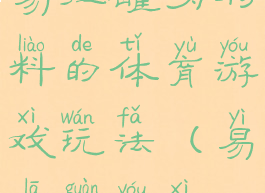 liào de tǐ yù yóu
料的体育游
xì wán fǎ yì
戏玩法（易
lā guàn yóu xì